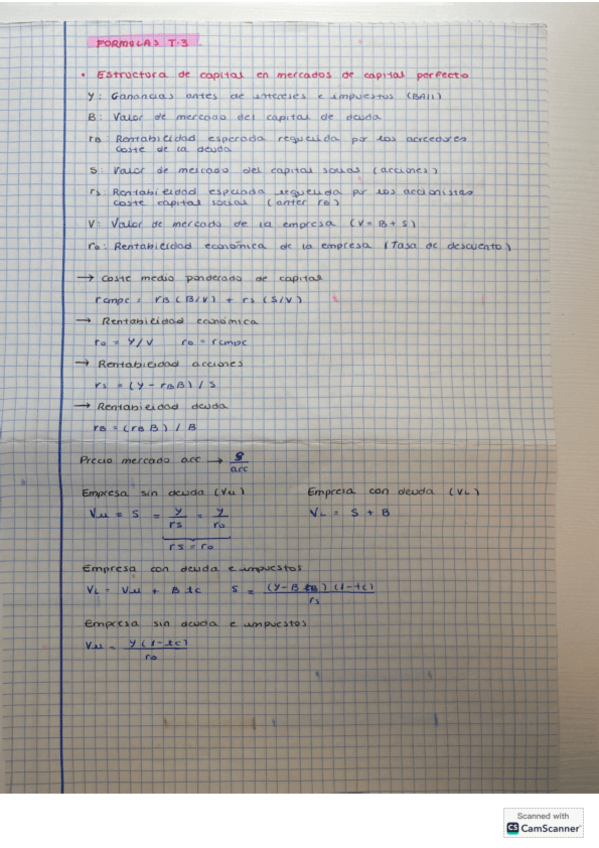 FORMULAS T.3
• Estructura de capital en mercados de capital perfecto
Y: Ganancias antes de intereses e impuestos (BAII)
B: Valor de mercado del capital de deuda
rB: Rentabilidad esperada requerida por los acreedores
coste de la deuda
S: Valor de mercado del capital social (acciones)
rs: Rentabilidad esperada requerida por los accionistas
coste capital social (anter ro)
V: Valor de mercado de la empresa (V = B + S)
ro: Rentabilidad económica de la empresa (Tasa de descuento)
→ Coste medio ponderado de capital
rcmpc = rB (B/V) + rs (S/V)
→ Rentabilidad económica
ro = Y/V ro = rcmpc
→ Rentabilidad acciones
rs = (Y - rB B) / S
→ Rentabilidad deuda
rB = (rB B) / B
Precio mercado acc → S/acc
Empresa sin deuda (Vu) Empresa con deuda (VL)
Vu = S = Y/rs = Y/ro VL = S + B
rs = ro
Empresa con deuda e impuestos
VL = Vu + B tc S = (Y - B rB)(1 - tc)/rs
Empresa sin deuda e impuestos
Vu = Y(1 - tc)/ro
Scanned with
CS CamScanner